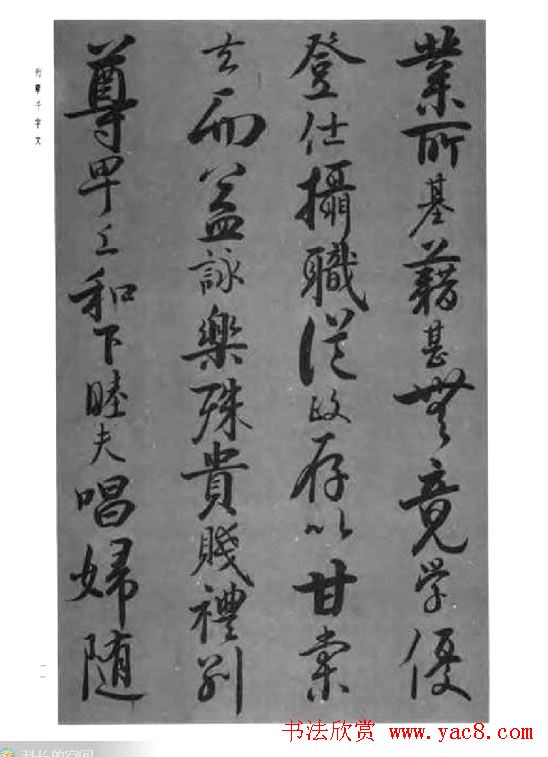 業所基藉甚無竟学優
登仕攝職從政存以甘棠
去而益詠樂殊貴賤禮別
尊卑上和下睦夫唱婦随
行草千字文
一一
书法欣赏
www.yac8.com
科长的空间